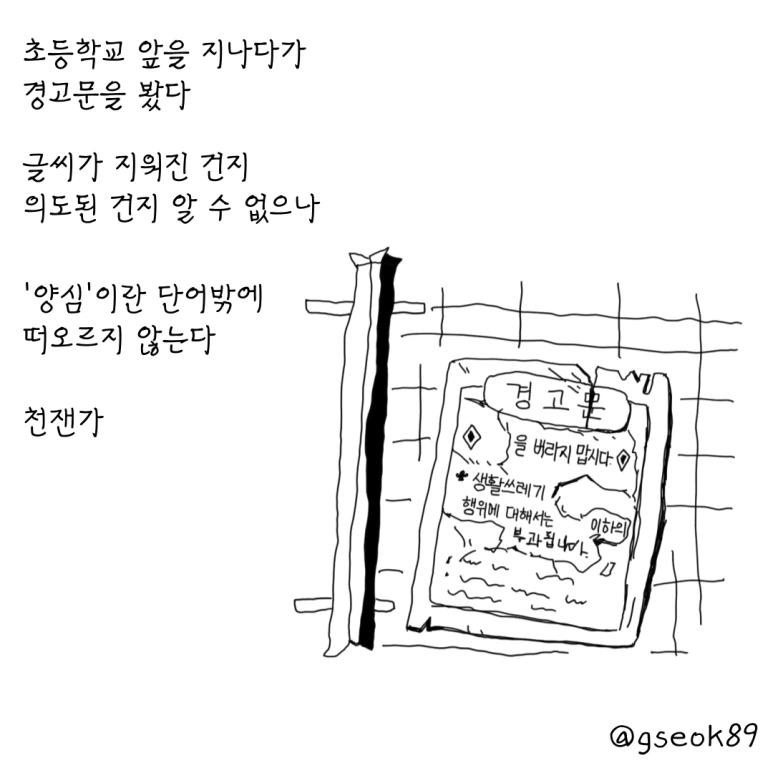 초등학교 앞을 지나다가
경고문을 봤다
글씨가 지워진 건지
의도된 건지 알 수 없으나
'양심'이란 단어밖에
떠오르지 않는다
천잰가
경고문
을 버리지 맙시다
생활쓰레기
행위에 대해서는 이하의
부과됩니다.
@gseok89